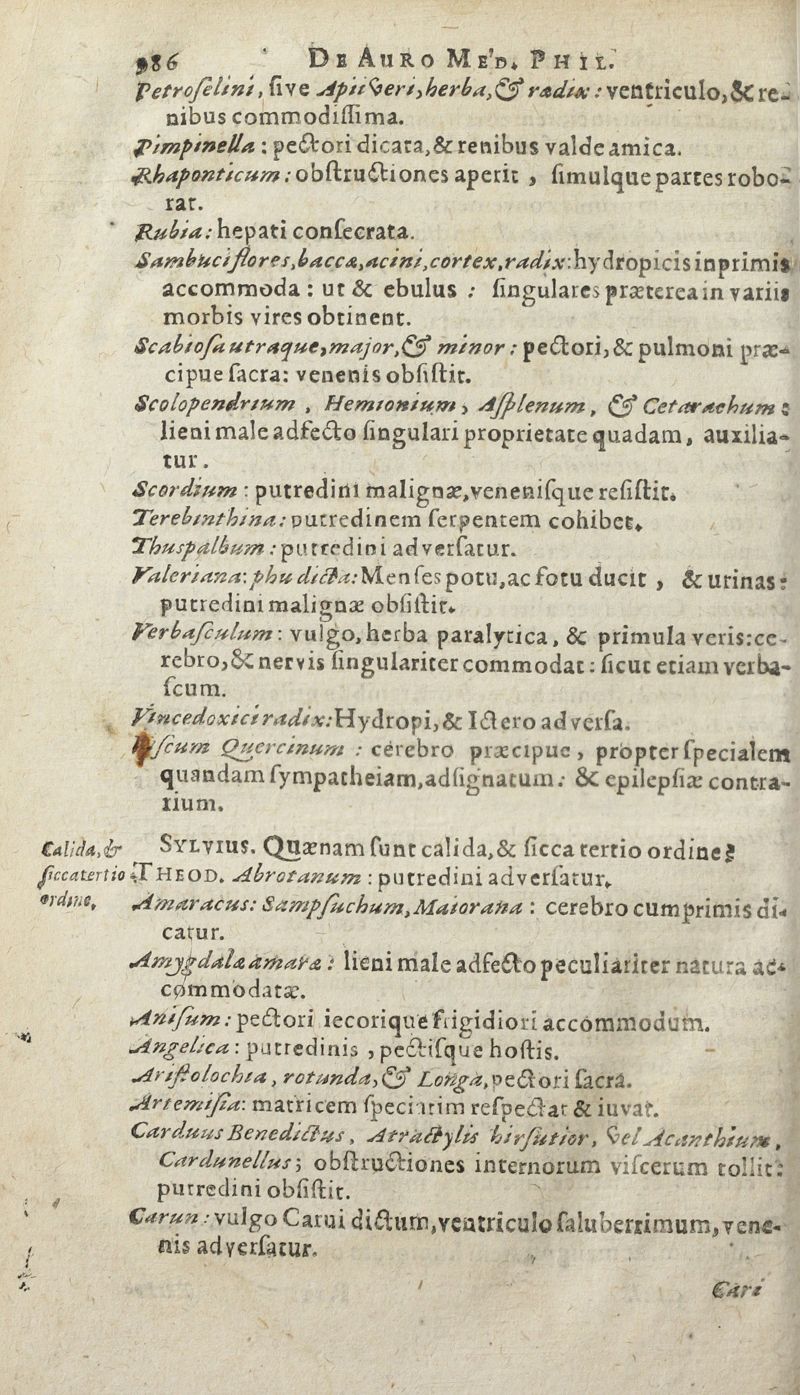 986 De Auro Med. Phil.
Petroſelini, ſive Apii veri, herba, & radix: ventriculo, & re-
nibus commodiſſima.
Pimpinella: pectori dicata, & renibus valde amica.
Rhaponticum: obſtructiones aperit, ſimulque partes robo-
rat.
Rubia: hepati conſecrata.
Sambuci flores, baccæ, acini, cortex, radix: hydropicis in primis
accommoda: ut & ebulus: ſingulares præterea in variis
morbis vires obtinent.
Scabioſa utraque, major, & minor: pectori, & pulmoni præ-
cipue ſacra: venenis obſiſtit.
Scolopendrium, Hemionium, Aſplenum, & Cetarachum:
lieni male adfecto ſingulari proprietate quadam, auxilia-
tur.
Scordium: putredini malignæ, veneniſque reſiſtit.
Terebinthina: putredinem ſerpentem cohibet.
Thuſpalbum: putredini adverſatur.
Valeriana: phu dicta: Menſes potu, ac fotu ducit, & urinas:
putredini malignæ obſiſtit.
Verbaſculum: vulgo, herba paralytica, & primula veris: ce-
rebro, & nervis ſingulariter commodat: ſicut etiam verba-
ſcum.
Vincedoxici radix: Hydropi, & Ictero adverſa.
Viſcum Quercinum: cerebro præcipue, propter ſpecialem
quandam ſympatheiam, adſignatum: & epilepſiæ contra-
rium.
Calida, & Sylvius. Quænam ſunt calida, & ſicca tertio ordine?
ſicca tertio Theod. Abrotanum: putredini adverſatur.
ordine. Amaracus: Sampſuchum, Maiorana: cerebro cumprimis di-
catur.
Amygdalæ amaræ: lieni male adfecto peculiariter natura ac-
commodatæ.
Aniſum: pectori iecorique frigidiori accommodum.
Angelica: putredinis, peſtiſque hoſtis.
Ariſtolochia, rotunda, & Longa, pectori ſacra.
Artemiſia: matricem ſpeciatim reſpectat & iuvat.
Carduus Benedictus, Atractylis hirſutior, vel Acanthium,
Cardunellus; obſtructiones internorum viſcerum tollit:
putredini obſiſtit.
Carun: vulgo Carui dictum, ventriculo ſaluberrimum, vene-
nis adverſatur.
Cari